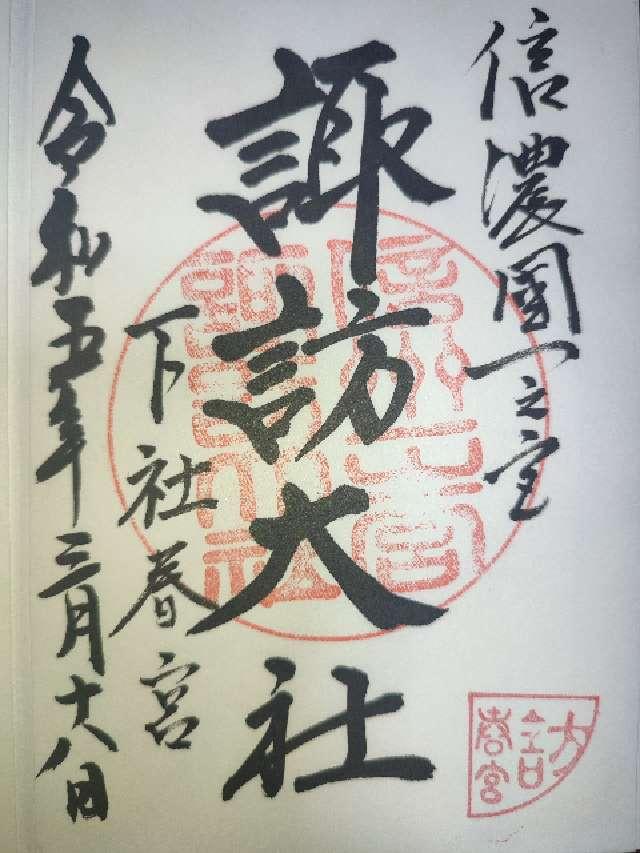 信濃國一之宮
諏訪大社
下社春宮
令和五年三月十八日
春宮